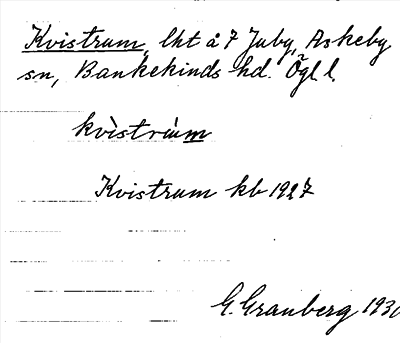 Kvistrum, lht å 7 Juby, Askeby
sn, Bankekinds hd. Ögl. l.
kvìstrùm
Kvistrum kb 1927
G. Granberg 1930